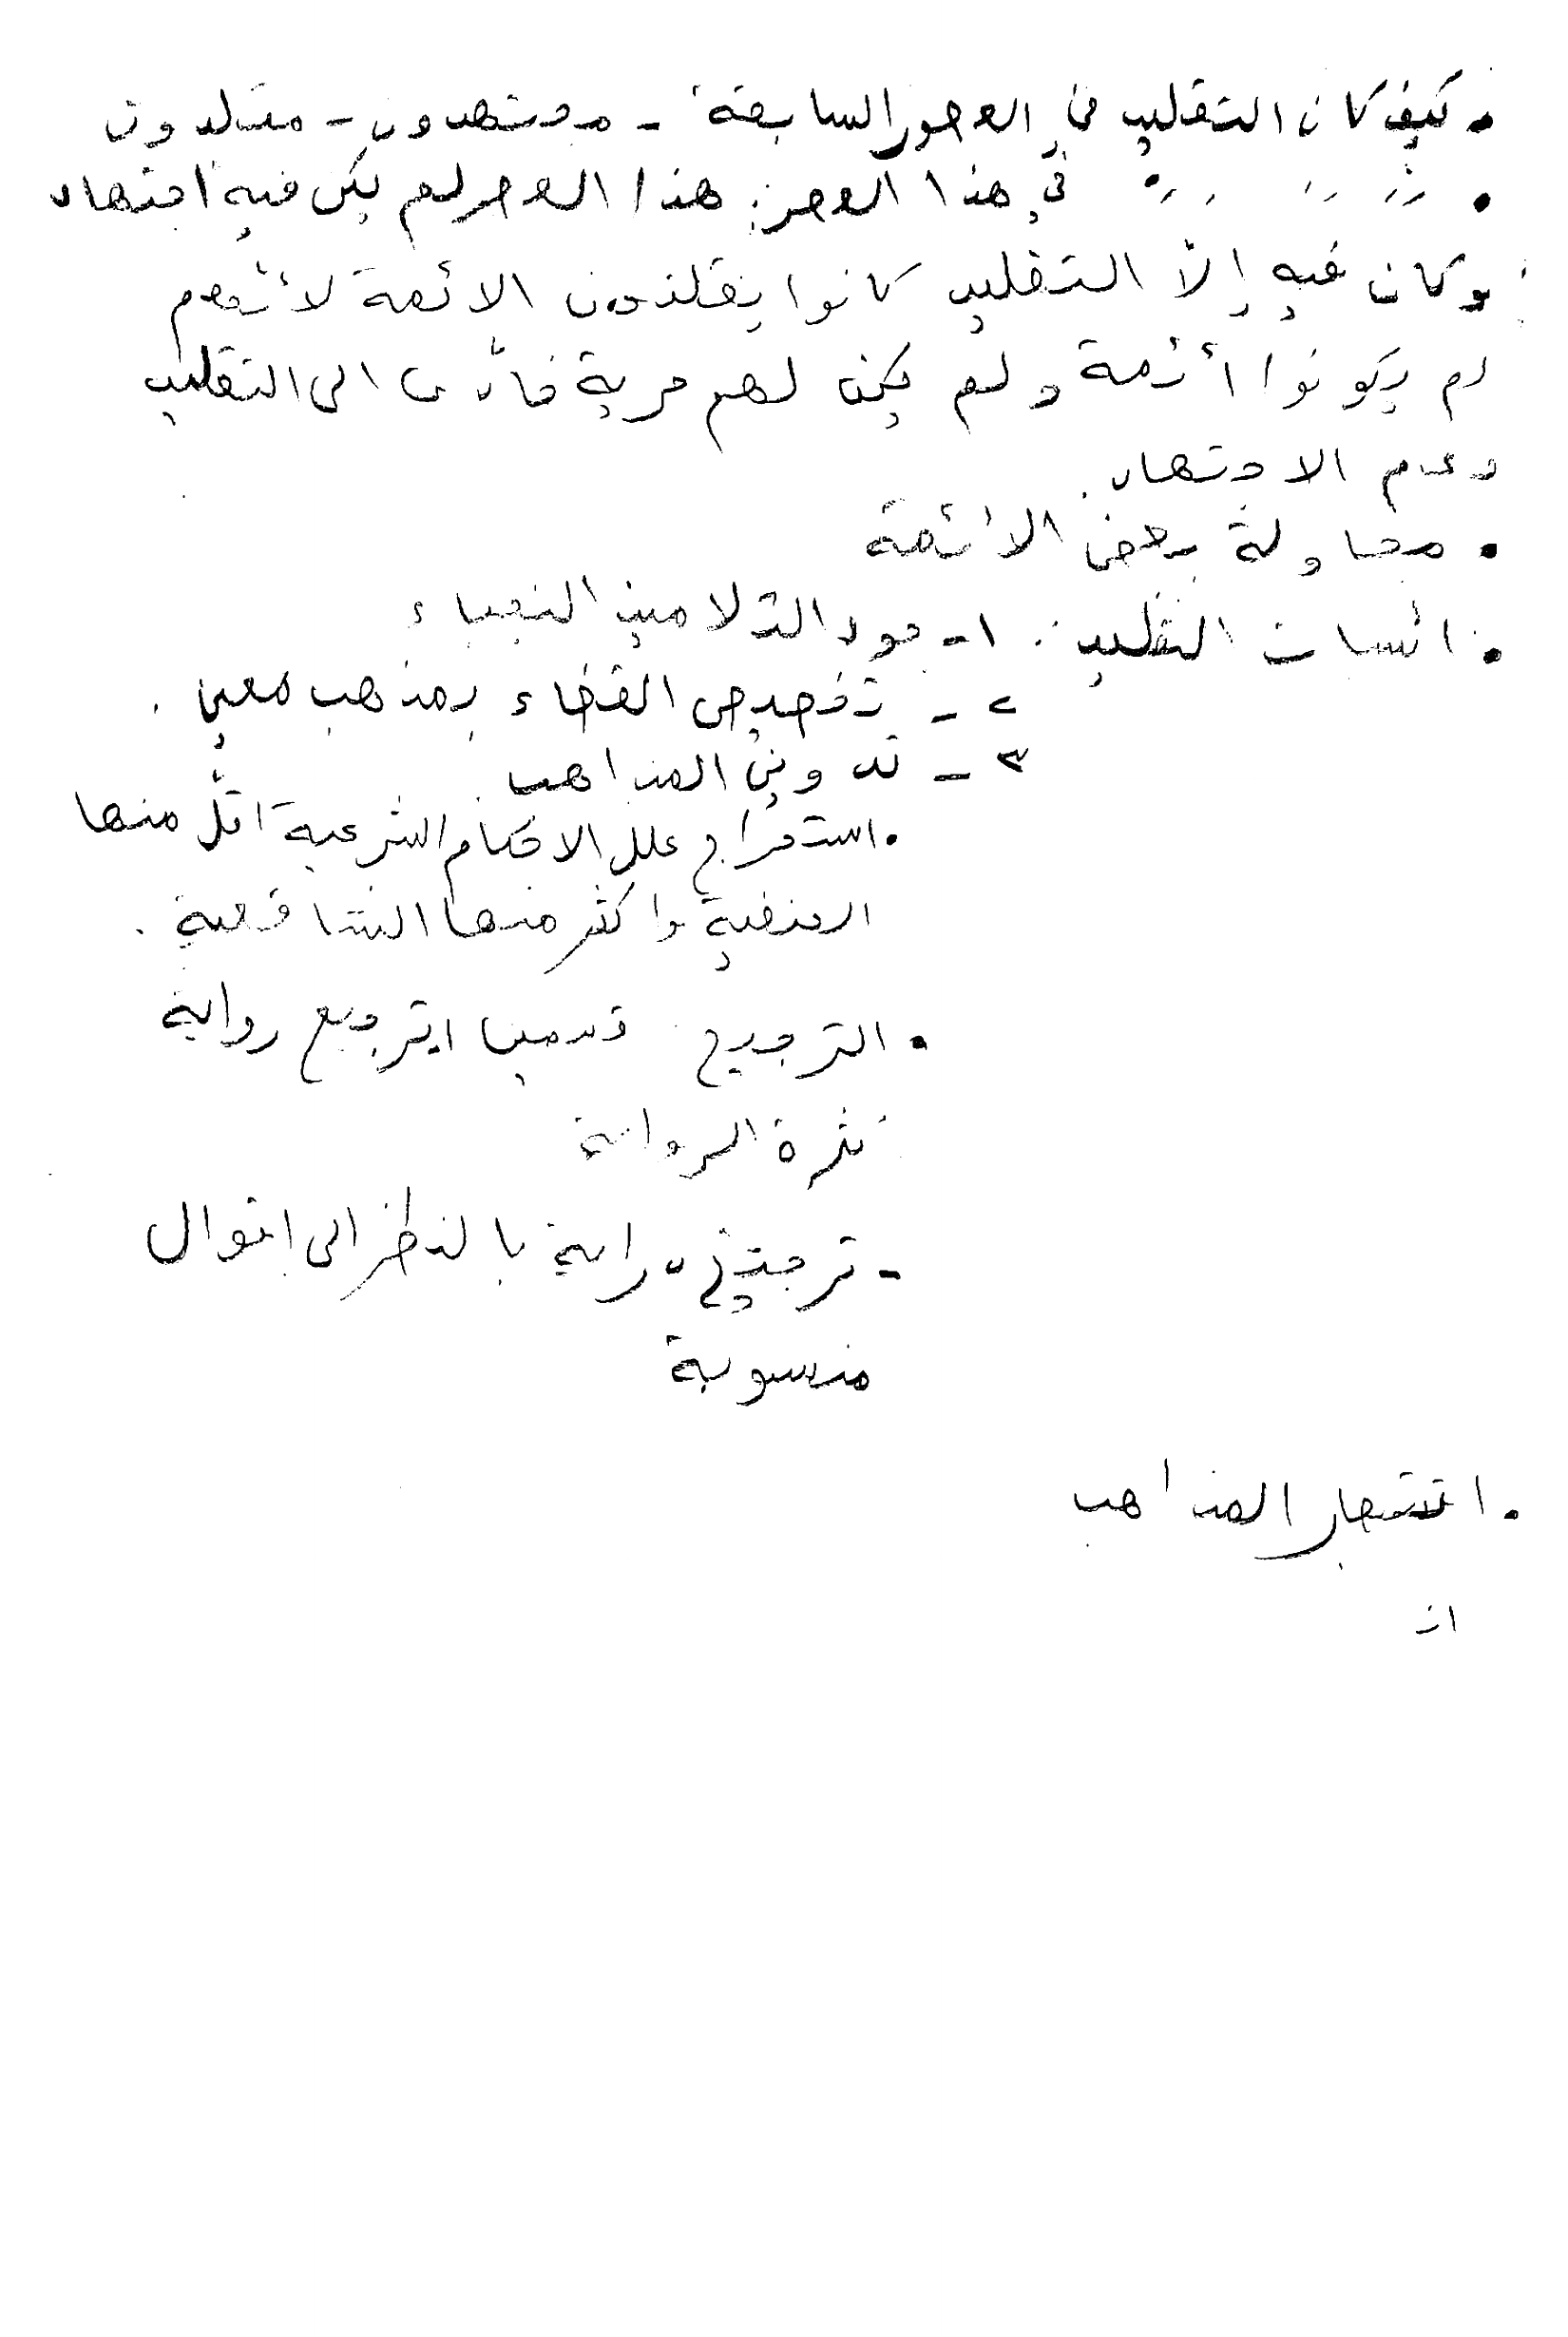 • كيف كان التقليد في العصور السابقة - مجتهدون - مقلدون
• 〃 〃 〃 في هذا العصر: هذا العصر لم يكن فيه اجتهاد
وكان فيه إلاّ التقليد كانوا يقلدون الائمة لأنهم
لم يكونوا أئمة ولم يكن لهم حرية فأدى الى التقليد
وعدم الاجتهاد.
• محاولة بعض الأئمة
• التقليد: ١- التلاميذ النجباء
٢ - تخصيص القضاء بمذهب معين.
٣ - تدوين المذاهب
• استخراج علل الاحكام الشرعية اقل منها
الحنفية واكثر منها الشافعية.
• الترجيح ترجيح رواية
كثرة الرواية
- ترجيح دراية بالنظر الى اقوال
منسوبة
• انتصار المذاهب
ان